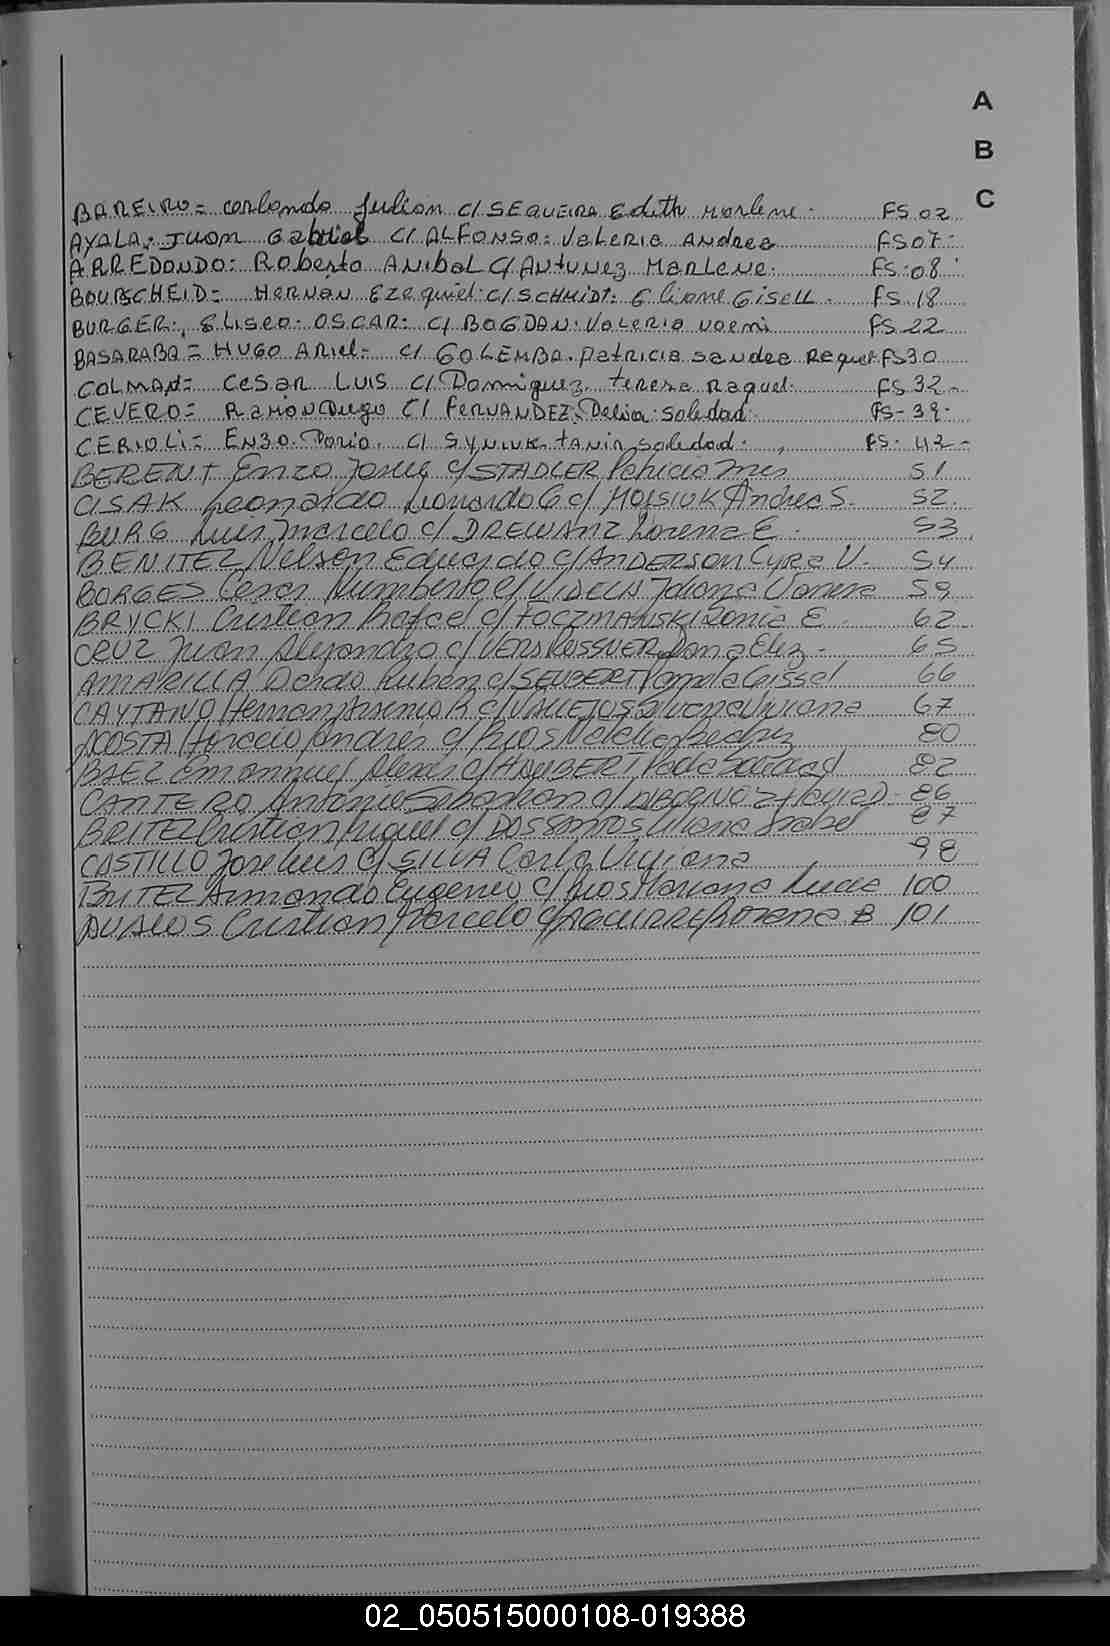 A
B
C
BAREIRO = Carlando Julian C/ SEQUEIRA Edith Marlene. FS 02
AYALA: Juan Gabriel C/ ALFONSO: Valeria Andrea FS 07-
ARREDONDO: Roberto Anibal C/ Antunez Marlene. FS: 08
BOURSCHEID = Hernan Ezequiel: C/ SCHMIDT: Eliane Gisell. FS. 18
BURGER: Eliseo. OSCAR: C/ BOGDAN: Valeria Noemi FS 22
BASARABA = HUGO Ariel = C/ GOLEMBA. Patricia Sandra Raquel FS 30
COLMAN = Cesar LUIS C/ Dominguez. teresa Raquel. FS 32-
CEVERO = Ramón Diego C/ FERNANDEZ Delia: Soledad. FS-39-
CERIOLI = ENZO. Dario. C/ SYNIUK. tania Soledad. FS- 42-
BERENT Enzo Josue C/ STADLER Patricia Ines 51
CISAK Leonardo Leonardo G C/ MOISIUK Andrea S. 52.
BURG Luis Marcelo C/ DREWANZ Lorena E. 53
BENITEZ Nelson Eduardo C/ ANDERSON Cyra V. 54
BORGES Cesar Humberto C/ VIDELA Juliana Vanesa 59
BRYCKI Cristian Rafael C/ FOCZMANSKI Sonia E. 62
CRUZ Juan Alejandro C/ Dana Eliz - 65
AMARILLA Ruben C/ SEUBERT Pamela Gissel 66
CAYTANO Hernan Arsenio R C/ VALLEJOS Silvana Viviana 67
ACOSTA Horacio Andres C/ RIOS Natalia Beatriz 80
BAEZ Emannuel Alexis C/ HAUBERT Paola Soledad 82
CANTERO Antonio Sebastian C/ D- 86
BRITEZ Cristian Miguel C/ DOS SANTOS Liliana Isabel 87
CASTILLO Jose Luis C/ SILVA Carla Viviana 98
BRITEZ Armando Eugenio C/ Rios Mariana Lucia 100
AVALOS Cristian Marcelo C/ AGUIRRE Lorena B 101
02_050515000108-019388